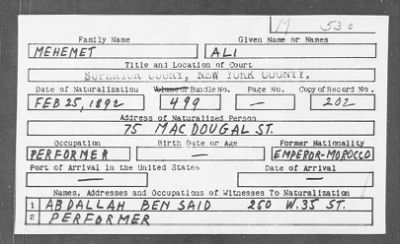 M 530
Family Name Given Name or Names
MEHEMET ALI
Title and Location of Court
SUPERIOR COURT, NEW YORK COUNTY.
Date of Naturalization Volume or Bundle No. Page No. Copy of Record No.
FEB 25, 1892 499 — 202
Address of Naturalized Person
75 MACDOUGAL ST.
Occupation Birth Date or Age Former Nationality
PERFORMER — EMPEROR-MOROCCO
Port of Arrival in the United States Date of Arrival
— —
Names, Addresses and Occupations of Witnesses To Naturalization
1 ABDALLAH BEN SAID 250 W. 35 ST.
2 PERFORMER